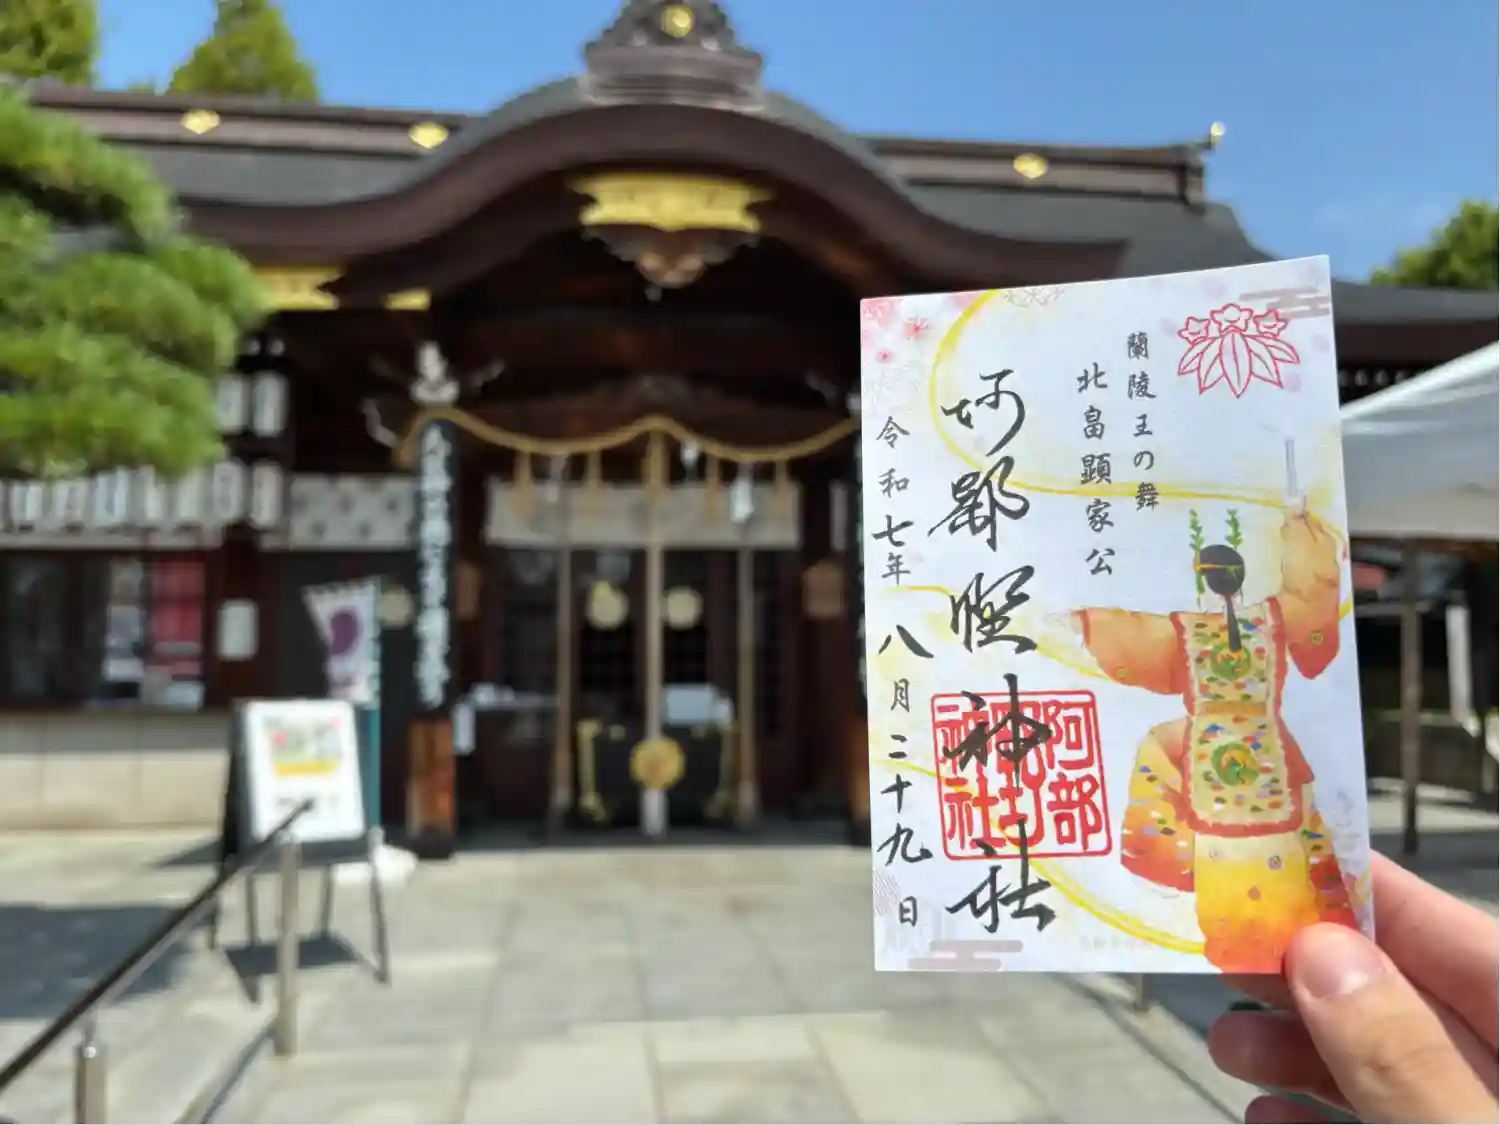 蘭陵王の舞
北畠顕家公
阿部野神社
阿部野神社
令和七年八月二十九日